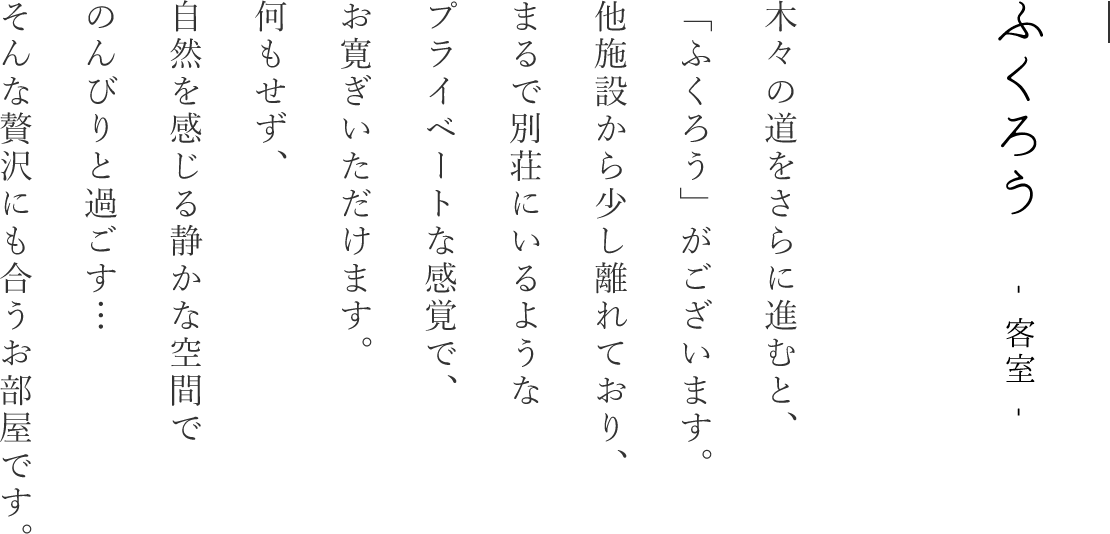 ふくろう - 客室 -
木々の道をさらに進むと、
「ふくろう」がございます。
他施設から少し離れており、
まるで別荘にいるような
プライベートな感覚で、
お寛ぎいただけます。
何もせず、
自然を感じる静かな空間で
のんびりと過ごす…
そんな贅沢にも合うお部屋です。